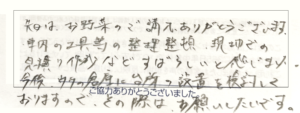 先日は、お野菜のご購入ありがとうございます。
車内の工具等の整理整頓、現場での
見積り作りなどすばらしいと感じました。
今後、ウチの倉庫に台所の設置を検討して
おりますので、その際はお願いしたいです。
ご協力ありがとうございました。